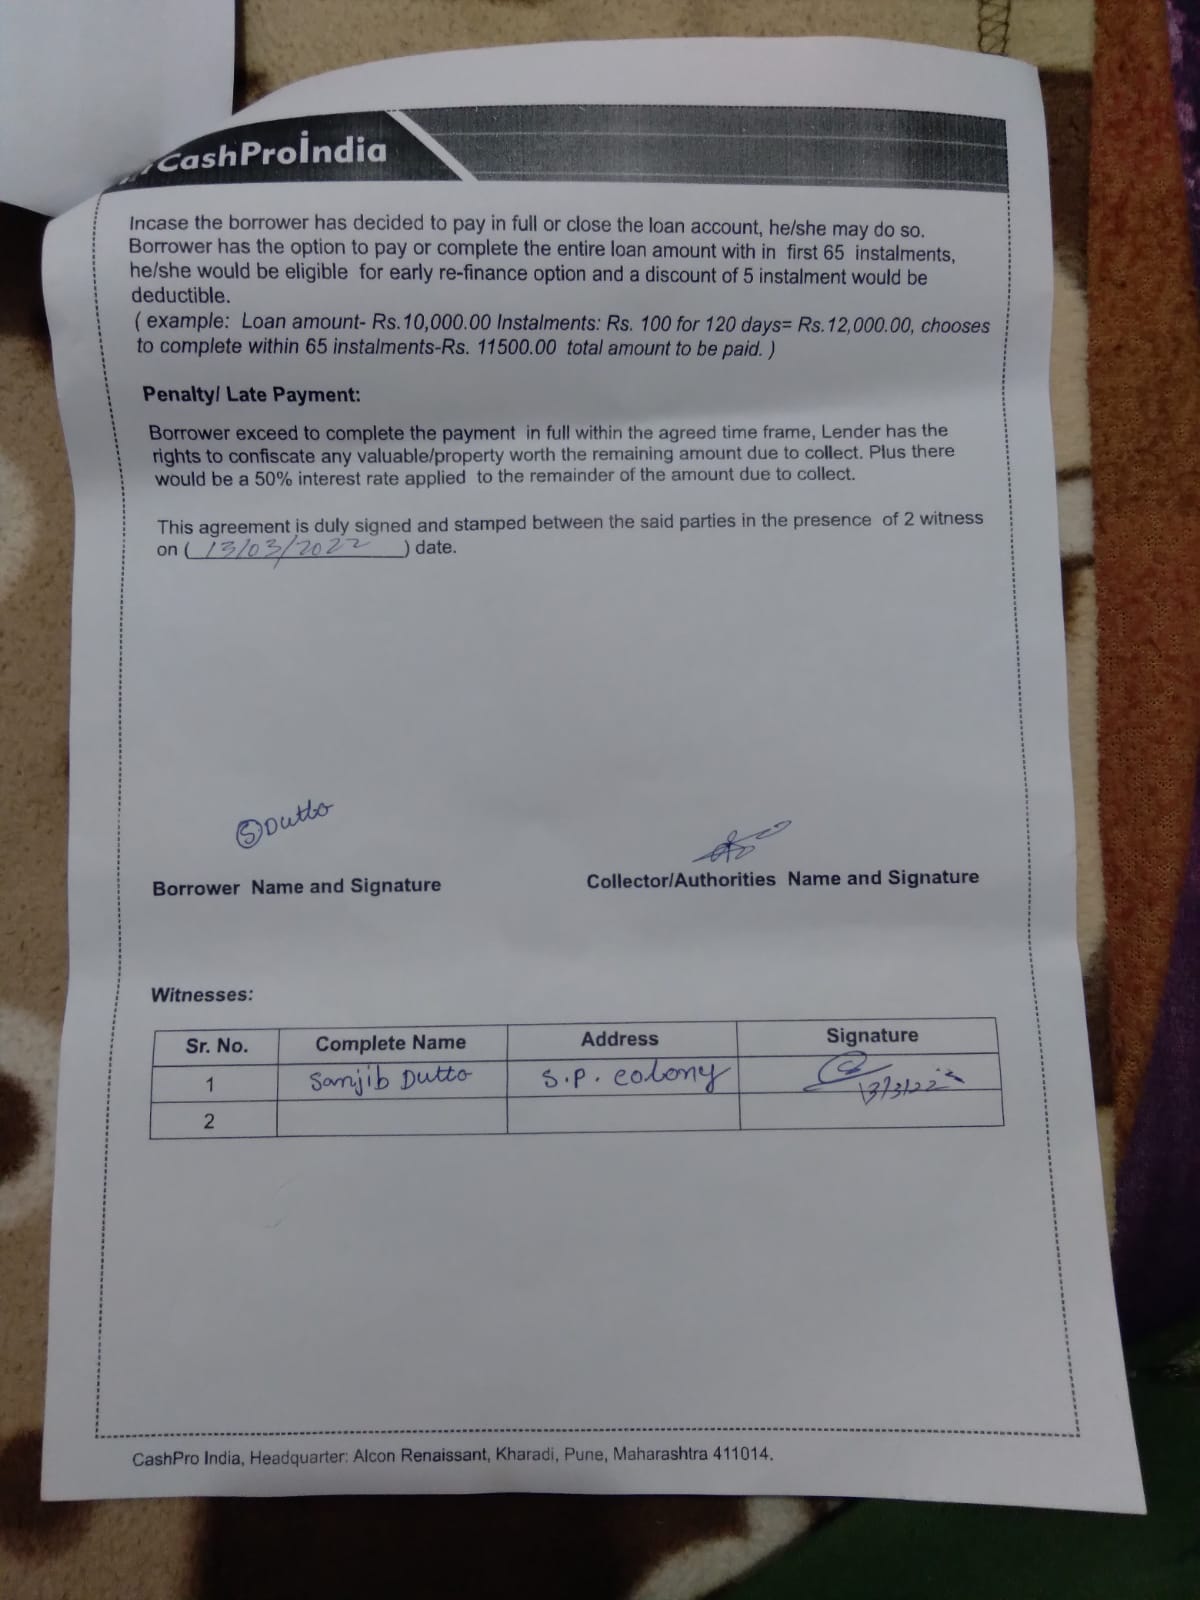 CashProİndia
Incase the borrower has decided to pay in full or close the loan account, he/she may do so.
Borrower has the option to pay or complete the entire loan amount with in first 65 instalments,
he/she would be eligible for early re-finance option and a discount of 5 instalment would be
deductible.
( example: Loan amount- Rs.10,000.00 Instalments: Rs. 100 for 120 days= Rs.12,000.00, chooses
to complete within 65 instalments-Rs. 11500.00 total amount to be paid. )
Penalty/ Late Payment:
Borrower exceed to complete the payment in full within the agreed time frame, Lender has the
rights to confiscate any valuable/property worth the remaining amount due to collect. Plus there
would be a 50% interest rate applied to the remainder of the amount due to collect.
This agreement is duly signed and stamped between the said parties in the presence of 2 witness
on ( 13/03/2022 ) date.
S Dutto
Borrower Name and Signature
Collector/Authorities Name and Signature
Witnesses:
Sr. No. Complete Name Address Signature
1 Sanjib Dutto S.P. colony 13/3/22
2
CashPro India, Headquarter: Alcon Renaissant, Kharadi, Pune, Maharashtra 411014.